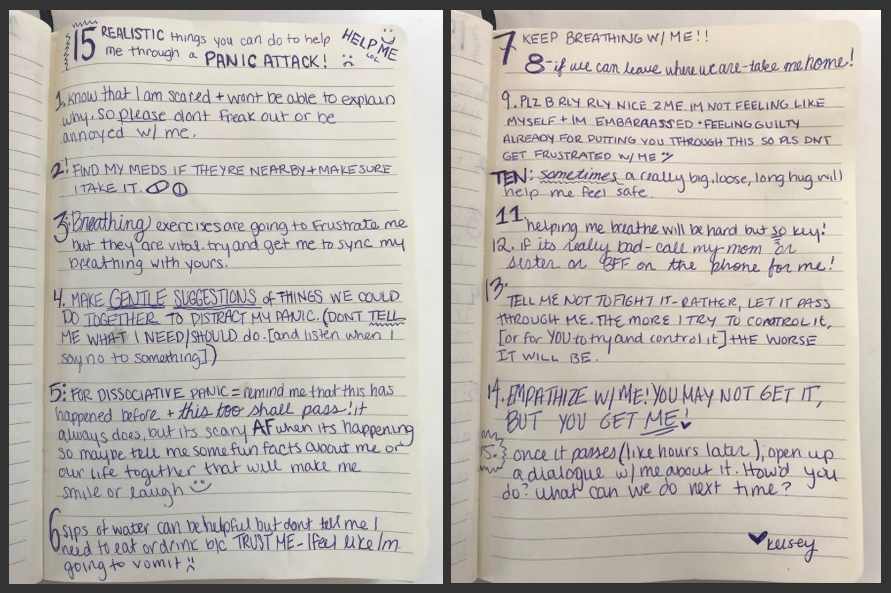 15 REALISTIC things you can do to help
me through a PANIC ATTACK!
HELP ME
LOL
1. know that I am scared + wont be able to explain
why. so please dont freak out or be
annoyed w/ me.
2: FIND MY MEDS IF THEYRE NEARBY + MAKE SURE
I TAKE IT.
3: Breathing exercises are going to frustrate me
but they are vital. try and get me to sync my
breathing with yours.
4. MAKE GENTLE SUGGESTIONS of THINGS WE COULD
DO TOGETHER TO DISTRACT MY PANIC. (DONT TELL
ME WHAT I NEED/SHOULD do. [and listen when I
say no to something])
5: FOR DISSOCIATIVE PANIC = remind me that this has
happened before + this too shall pass! it
always does, but its scary AF when its happening
so maybe tell me some fun facts about me or
our life together that will make me
smile or laugh
6 sips of water can be helpful but dont tell me I
need to eat or drink b/c TRUST ME - I feel like Im
going to vomit
7 KEEP BREATHING W/ ME!!
8 - if we can leave where we are - take me home!
9. PLZ B RLY RLY NICE 2 ME. IM NOT FEELING LIKE
MYSELF + IM EMBARRASSED + FEELING GUILTY
ALREADY FOR PUTTING YOU THROUGH THIS SO PLS DNT
GET FRUSTRATED W/ ME
TEN: sometimes a really big, loose, long hug will
help me feel safe.
11. helping me breathe will be hard but so key!
12. if its really bad - call my mom or
sister or BFF on the phone for me!
13. TELL ME NOT TO FIGHT IT - RATHER, LET IT PASS
THROUGH ME. THE MORE I TRY TO CONTROL IT,
[or for YOU to try and control it] THE WORSE
IT WILL BE.
14. EMPATHIZE W/ ME! YOU MAY NOT GET IT,
BUT YOU GET ME!
15. once it passes (like hours later), open up
a dialogue w/ me about it. How'd you
do? what can we do next time?
kelsey